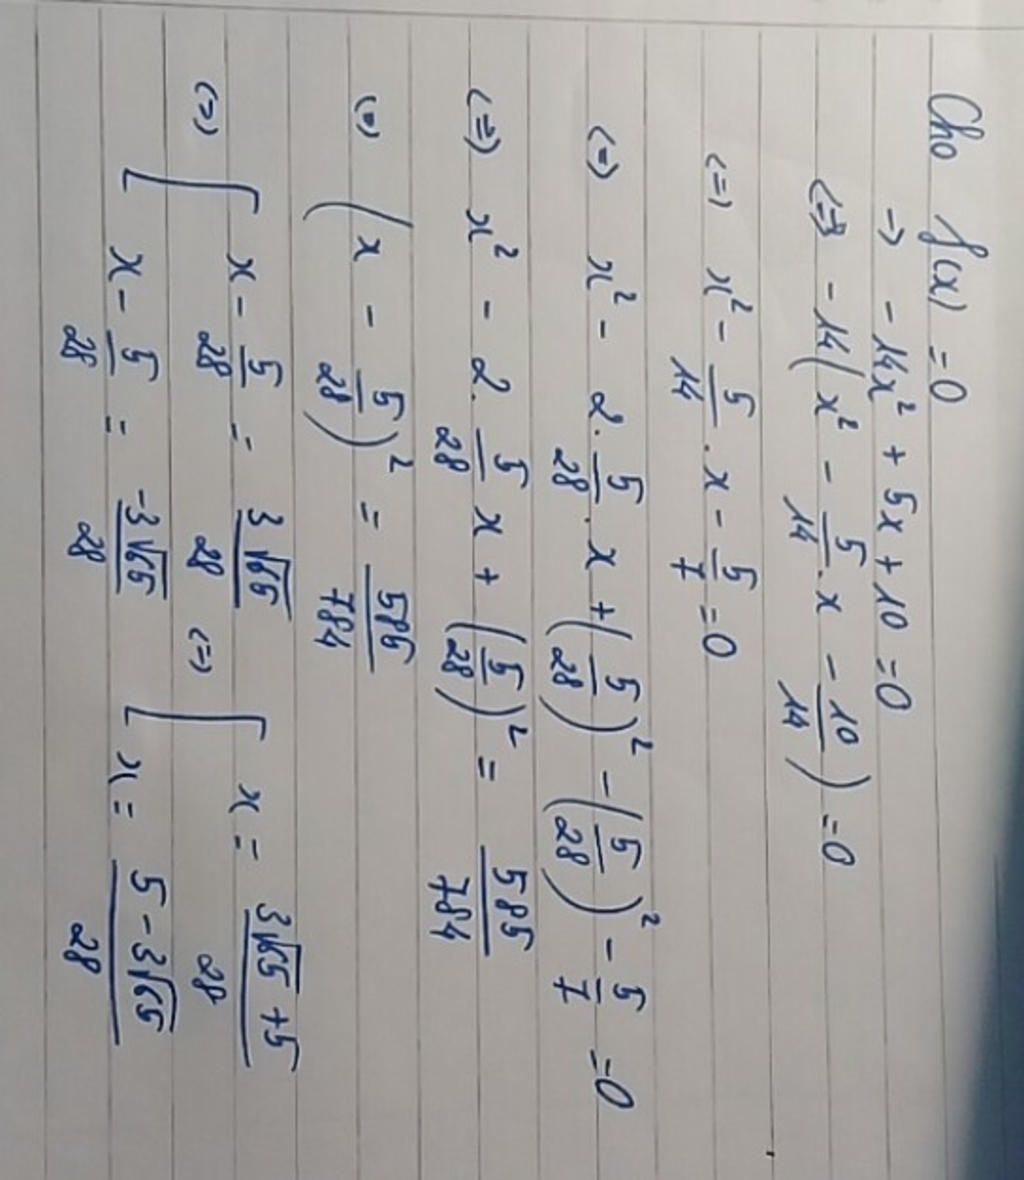 Cho f(x) = 0
→ - 14x² + 5x + 10 = 0
(=) - 14(x² - 5/14 . x - 10/14) = 0
(=) x² - 5/14 . x - 5/7 = 0
(=) x² - 2 . 5/28 . x + (5/28)² - (5/28)² - 5/7 = 0
(=) x² - 2 . 5/28 x + (5/28)² = 585/784
(=) (x - 5/28)² = 585/784
(=) [ x - 5/28 = 3√65/28 (=) [ x = 3√65 + 5/28
x - 5/28 = -3√65/28 x = 5 - 3√65/28